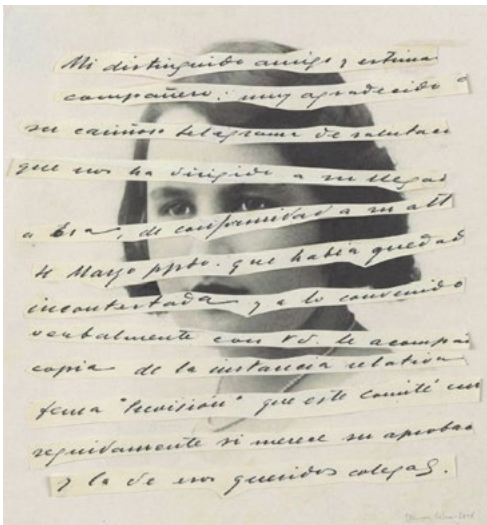 Mi distinguido amigo y estima
compañero: muy agradecido a
su cariñoso telegrama de salutaci
que nos ha dirigido a su llegad
a Esa, de conformidad a su att
4 Marzo ppdo. que había quedad
incontestada y a lo convenido
verbalmente con Vd. le acompañ
copia de la instancia relativa
tema "Previsión" que este Comité
seguidamente si merece su aprobac
y la de esos queridos colegas.